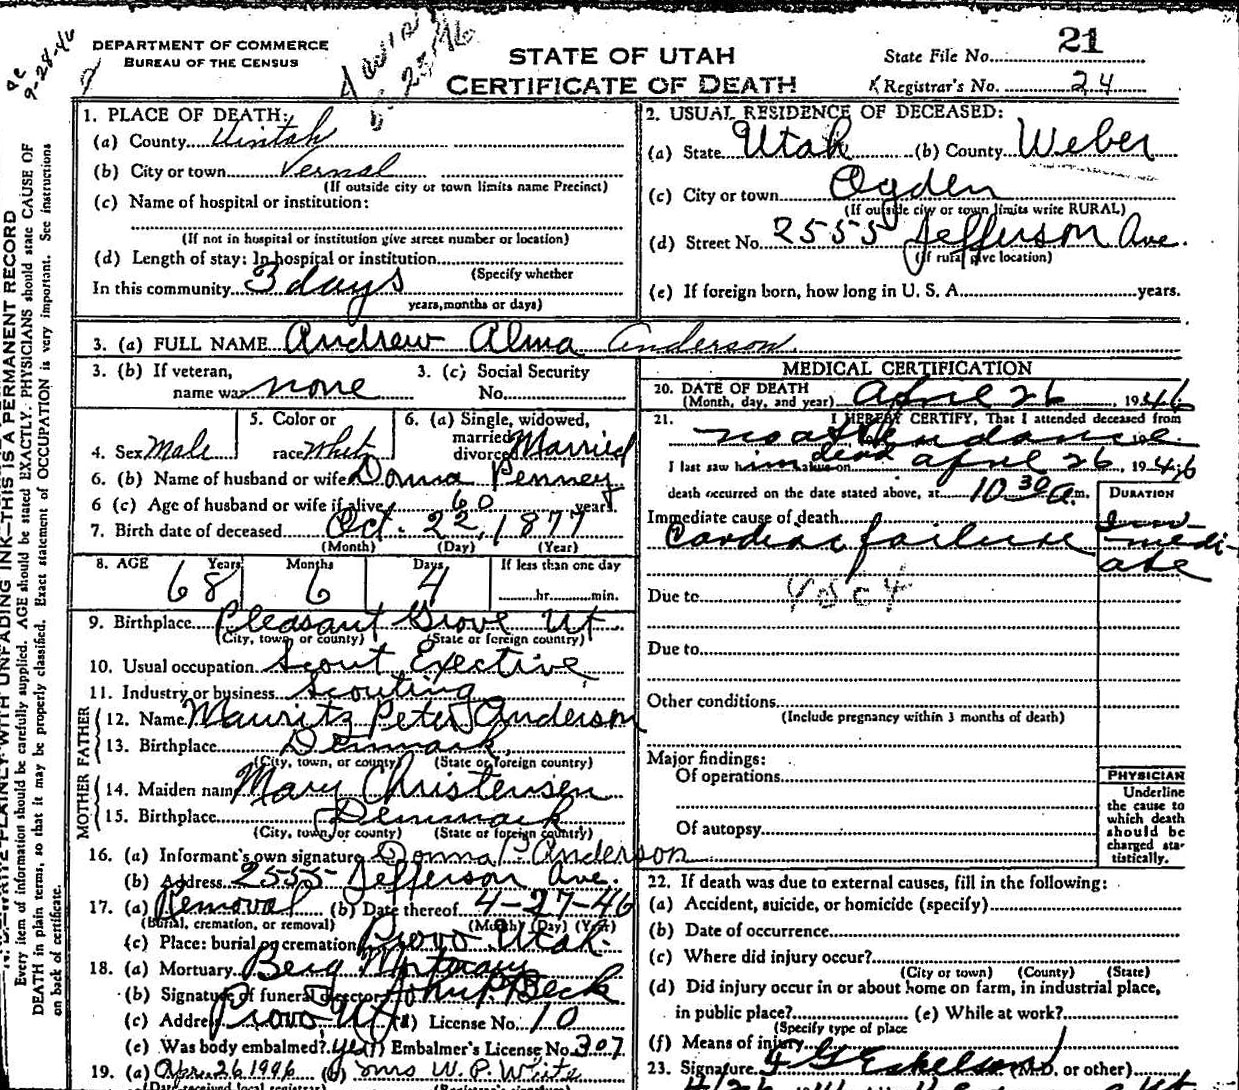 21
DEPARTMENT OF COMMERCE
BUREAU OF THE CENSUS
STATE OF UTAH
CERTIFICATE OF DEATH
State File No.
Registrar's No. 24
9-28-46
1. PLACE OF DEATH:
(a) County Uintah
(b) City or town Vernal
(If outside city or town limits name Precinct)
(c) Name of hospital or institution:
(If not in hospital or institution give street number or location)
(d) Length of stay: In hospital or institution
(Specify whether
In this community 3 days
years, months or days)
2. USUAL RESIDENCE OF DECEASED:
(a) State Utah (b) County Weber
(c) City or town Ogden
(If outside city or town limits write RURAL)
(d) Street No. 2555 Jefferson Ave.
(If rural give location)
(e) If foreign born, how long in U. S. A. years.
3. (a) FULL NAME Andrew Alma Anderson
3. (b) If veteran,
name war none
3. (c) Social Security
No.
4. Sex Male
5. Color or
race White
6. (a) Single, widowed,
married,
divorced Married
6. (b) Name of husband or wife Donna Penney
6 (c) Age of husband or wife if alive 60 years
7. Birth date of deceased Oct. 22, 1877
(Month) (Day) (Year)
8. AGE Years Months Days If less than one day
68 6 4 hr. min.
9. Birthplace Pleasant Grove Ut.
(City, town, or county) (State or foreign country)
10. Usual occupation Scout Exective
11. Industry or business Scouting
FATHER
12. Name Mauritz Peter Anderson
13. Birthplace Denmark
(City, town, or county) (State or foreign country)
MOTHER
14. Maiden name Mary Christensen
15. Birthplace Denmark
(City, town, or county) (State or foreign country)
16. (a) Informant's own signature Donna P Anderson
(b) Address 2555 Jefferson Ave.
17. (a) Removal (b) Date thereof 4-27-46
(Burial, cremation, or removal) (Month) (Day) (Year)
(c) Place: burial or cremation Provo Utah.
18. (a) Mortuary Berg Mortuary
(b) Signature of funeral director John P Beck
(c) Address Provo Ut (d) License No. 10
(e) Was body embalmed? yes (f) Embalmer's License No. 307
19. (a) Apr. 26 1946 (b) Mrs W. P. White
(Date received local registrar)
MEDICAL CERTIFICATION
20. DATE OF DEATH
(Month, day, and year) April 26, 1946
21. I HEREBY CERTIFY, That I attended deceased from
no attendance
I last saw him dead on April 26, 1946
death occurred on the date stated above, at 10 30 a m.
DURATION
Immediate cause of death
Cardiac failure
Immediate
Due to
Due to
Other conditions
(Include pregnancy within 3 months of death)
Major findings:
Of operations
Of autopsy
PHYSICIAN
Underline
the cause to
which death
should be
charged sta-
tistically.
22. If death was due to external causes, fill in the following:
(a) Accident, suicide, or homicide (specify)
(b) Date of occurrence
(c) Where did injury occur?
(City or town) (County) (State)
(d) Did injury occur in or about home on farm, in industrial place,
in public place? (e) While at work?
(Specify type of place
(f) Means of injury
23. Signature F G Eskelson (M.D. or other)
WRITE PLAINLY WITH UNFADING INK—THIS IS A PERMANENT RECORD
Every item of information should be carefully supplied. AGE should be stated EXACTLY. PHYSICIANS should state CAUSE OF
DEATH in plain terms, so that it may be properly classified. Exact statement of OCCUPATION is very important. See instructions
on back of certificate.